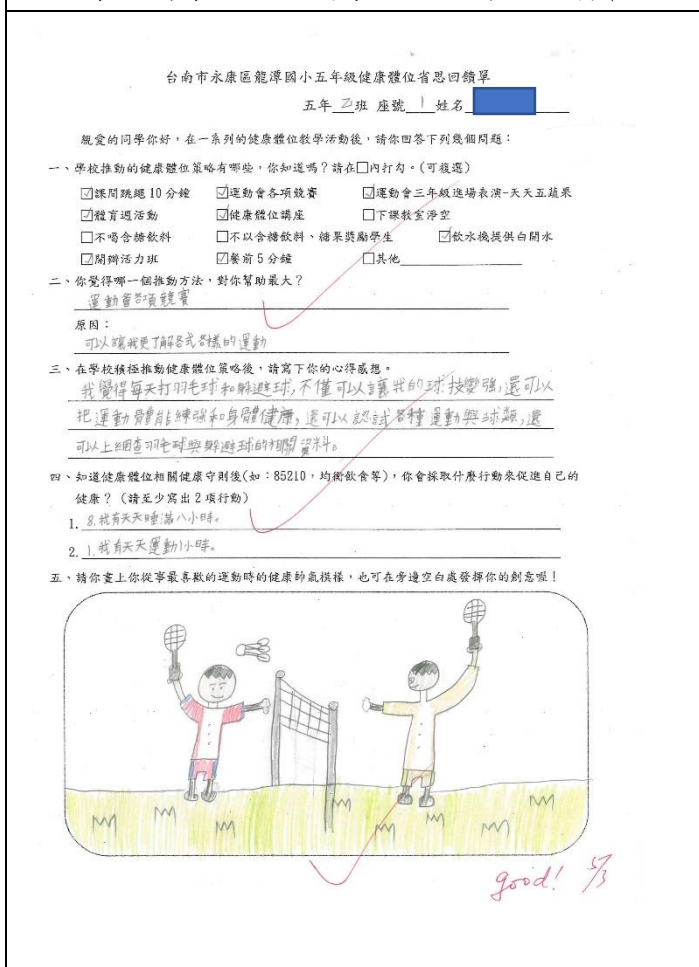 台南市永康區龍潭國小五年級健康體位省思回饋單
五年乙班 座號1 姓名
親愛的同學你好,在一系列的健康體位教學活動後,請你回答下列幾個問題:
一、學校推動的健康體位策略有哪些,你知道嗎?請在□內打勾。(可複選)
☑課間跳繩10分鐘 ☑運動會各項競賽 ☑運動會三年級進場表演-天天五蔬果
☑體育週活動 ☑健康體位講座 □下課教室淨空
□不喝含糖飲料 □不以含糖飲料、糖果獎勵學生 ☑飲水機提供白開水
☑開辦活力班 ☑餐前5分鐘 □其他
二、你覺得哪一個推動方法,對你幫助最大?
運動會各項競賽
原因:
可以讓我更了解各式各樣的運動
三、在學校積極推動健康體位策略後,請寫下你的心得感想。
我覺得每天打羽毛球和躲避球,不僅可以讓我的球技變強,還可以
把運動骨體能練強和身體健康,還可以認試各種運動與球類,還
可以上網查羽毛球與躲避球的相關資料。
四、知道健康體位相關健康守則後(如:85210,均衡飲食等),你會採取什麼行動來促進自己的
健康?(請至少寫出2項行動)
1. 8.我有天天睡滿八小時。
2. 1.我有天天運動1小時。
五、請你畫上你從事最喜歡的運動時的健康帥氣模樣,也可在旁邊空白處發揮你的創意喔!
good! 5/3